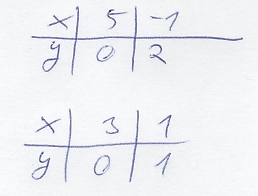 x | 5 | -1
y | 0 | 2
x | 3 | 1
y | 0 | 1